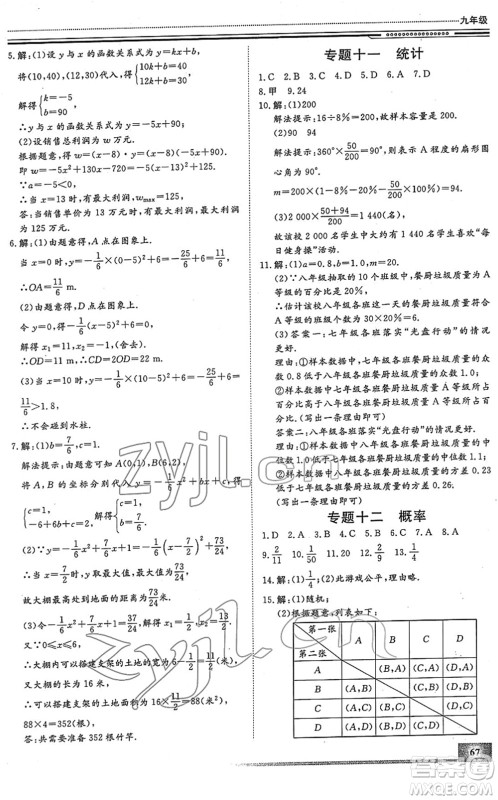 九年级
5.解:(1)设y与x的函数关系式为y=kx+b,
将(10,40),(12,30)代入,得{10k+b=40 12k+b=30
解得{k=-5 b=90
∴y与x的函数关系式为y=-5x+90;
(2)设销售总利润为w万元.
根据题意,得w=(x-8)(-5x+90).
即w=-5(x-13)²+125.
∵a=-5<0,∴w有最大值.
∴当x=13时,有最大利润,wmax=125.
答:当销售单价为13万元时,有最大利润,为125万元.
6.解:(1)由题意得,A点在图象上.
当x=0时,y=-1/6×(0-5)²+6=11/6
∴OA=11/6(m).
(2)由题意得,D点在图象上.
令y=0,得-1/6(x-5)²+6=0.
解得x₁=11,x₂=-1,(舍去).
∴OD=11 m,∴CD=2OD=22(m).
(3)当x=10时,y=-1/6×(10-5)²+6=11/6,
11/6>1.8,
∴不会碰到水柱.
7.解:(1)b=7/6,c=1.
解法提示:由题意知点A(0,1),B(6,2),
将A,B的坐标分别代入y=-1/6x²+bx+c得
{c=1, -6+6b+c=2 解得{c=1, b=7/6.
(2)∵y=-1/6x²+7/6x+1=-1/6(x-7/2)²+73/24
∴当x=7/2时,y有最大值73/24
故大棚最高处到地面的距离为73/24米.
(3)令y=37/24,则有-1/6x²+7/6x+1=37/24
解得x₁=1/2,x₂=13/2
又∵0≤x≤6,
∴大棚内可以搭建支架的土地的宽为6-1/2=11/2(米),
又∵大棚的长为16米,
∴需要搭建支架的土地面积为16×11/2=88(米²),
88×4=352(根).
答:共需要准备352根竹竿.
专题十一 统计
1.C 2.B 3.A 4.C 5.D 6.A 7.D
8.甲 9.24
10.解:(1)200
解法提示:16÷8%=200,故样本容量是200.
(2)90 94
解法提示:360°×50/200=90°,则表示A程度的扇形圆心角为90°.
m=200×(1-8%-20%-50/200×100%)=94.
(3)2 000×(50+94)/200=1 440(名),
故该校2 000名学生中大约有1 440名学生喜欢“每日健身操”活动.
11.解:(1)a=0.8,b=1.0;
(2)∵八年级抽取的10个班级中,餐厨垃圾质量为A等级的百分比是20%,
∴估计该校八年级各班这一天的餐厨垃圾质量符合A等级的班级数为30×20%=6(个);
(3)答案一:七年级各班落实“光盘行动”的情况更好.
理由:①样本数据中,七年级各班餐厨垃圾质量的众数0.8低于八年级各班餐厨垃圾质量的众数1.0,
②样本数据中七年级各班餐厨垃圾质量A等级的占40%高于八年级各班餐厨垃圾质量A等级的占20%.
(写出一条理由即可)
答案二:八年级各班落实“光盘行动”的情况更好.
理由:①样本数据中八年级各班餐厨垃圾质量的中位数1.0低于七年级各班餐厨垃圾质量的中位数1.1,
②样本数据中八年级各班餐厨垃圾质量的方差0.23低于七年级各班餐厨垃圾质量的方差0.26.
(写出一条理由即可)
专题十二 概率
1.D 2.A 3.C 4.B 5.D 6.C 7.C 8.A
9.2/11 10.1/50 11.20 12.3/8 13.1/6
14.解:(1)1/4;(2)此游戏公平,理由略.
15.解:(1)随机;
(2)根据题意,列表如下:
第一张 第二张 A B C D
A (B,A) (C,A) (D,A)
B (A,B) (C,B) (D,B)
C (A,C) (B,C) (D,C)
D (A,D) (B,D) (C,D)
67
zyjl.cn